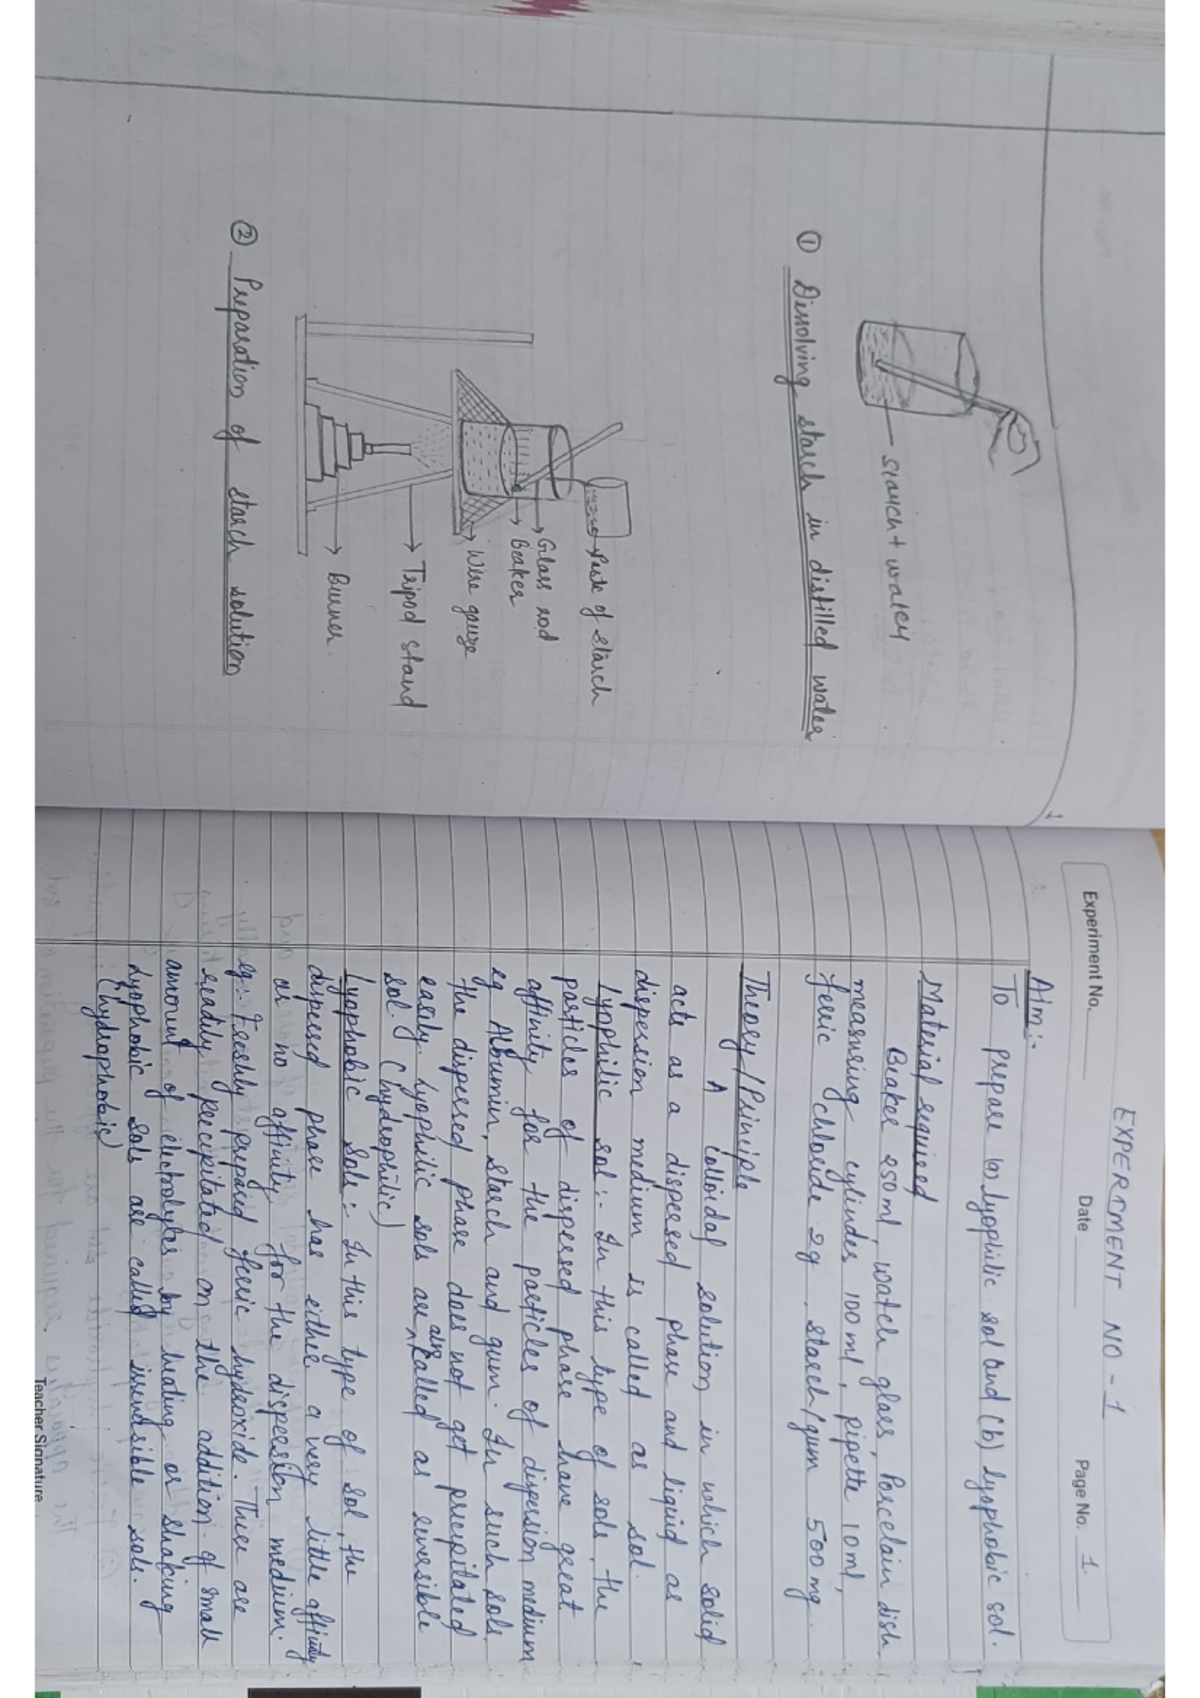 starch + water
① Dissolving starch in distilled water
Paste of starch
Glass rod
Beaker
Wire gauze
Tripod stand
Burner.
② Preparation of starch solution
EXPERIMENT NO - 1
Experiment No.
Date
Page No. 1
Aim:-
To prepare (a) lyophilic sol and (b) lyophobic sol.
Material required
Beaker 250ml, watch glass, Porcelain dish
measuring cylinder 100ml, pipette 10ml,
ferric chloride 2g, starch/gum 500mg.
Theory/Principle
A colloidal solution, in which solid
acts as a dispersed phase and liquid as
dispersion medium is called as sol.
Lyophilic sol:- In this type of sols, the
particles of dispersed phase have great
affinity for the particles of dispersion medium
eg Albumin, starch and gum. In such sols,
the dispersed phase does not get precipitated
easily. Lyophilic sols are also called as reversible
sol. (hydrophilic)
Lyophobic sols:- In this type of sol, the
dispersed phase has either a very little affinity
or no affinity for the dispersion medium.
eg:- Freshly prepared ferric hydroxide. These are
readily precipitated on the addition of small
amount of electrolytes by heating or shaking
Lyophobic sols are called irreversible sols.
(hydrophobic)
Teacher Signature